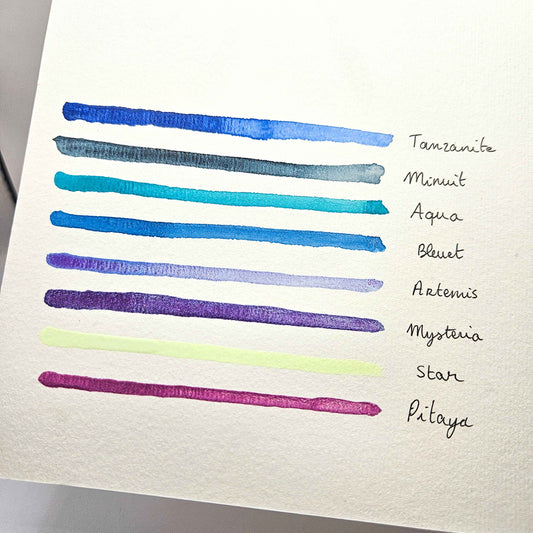 Tanzanite
Minuit
Aqua
Bleuet
Artemis
Mysteria
Star
Pitaya